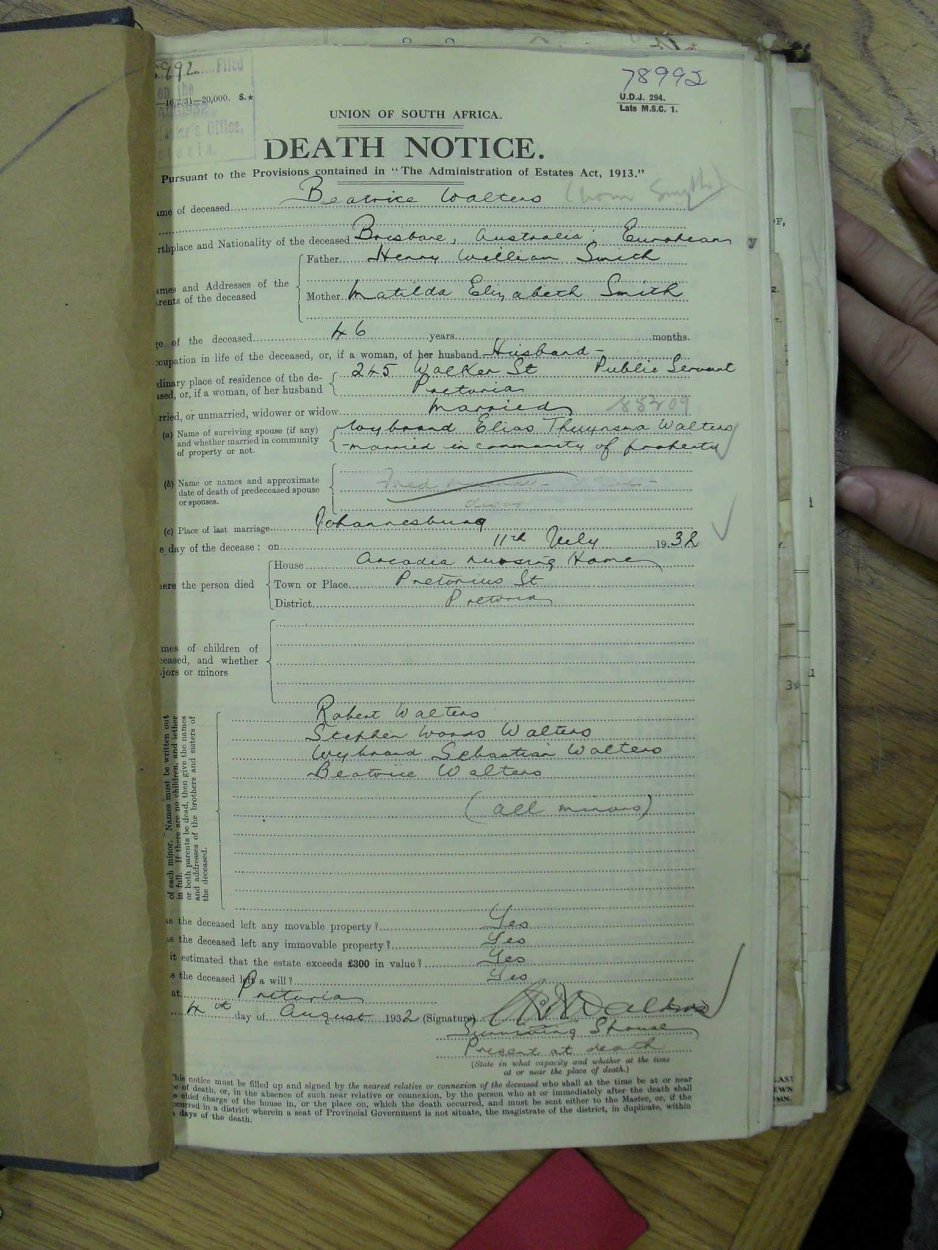 78992
U.D.J. 294.
Late M.S.C. 1.
5992 Filed
on the
Pretoria.
16/2/31—20,000. S.★
UNION OF SOUTH AFRICA.
DEATH NOTICE.
Pursuant to the Provisions contained in "The Administration of Estates Act, 1913."
ame of deceased Beatrice Walters (born Smyth)
rthplace and Nationality of the deceased Brisbane, Australia; European
Father Henry William Smith
ames and Addresses of the
rents of the deceased
Mother Matilda Elizabeth Smith
ge of the deceased 46 years months.
cupation in life of the deceased, or, if a woman, of her husband Husband -
245 Walker St Public Servant
dinary place of residence of the de-
ased, or, if a woman, of her husband
Pretoria
rried, or unmarried, widower or widow married 88209
(a) Name of surviving spouse (if any)
and whether married in community
of property or not.
Wybrand Elias Walters
married in community of property
(b) Name or names and approximate
date of death of predeceased spouse
or spouses.
(c) Place of last marriage Johannesburg
e day of the decease: on 11th July 1932
House Arcadia Nursing Home
ere the person died
Town or Place Pretorius St
District Pretoria
mes of children of
ceased, and whether
jors or minors
of each minor. Names must be written out
in full. If there are no children, and either
or both parents be dead, then give the names
and addresses of the brothers and sisters of
the deceased.
Robert Walters
Stephen Woods Walters
Wybrand Sebastian Walters
Beatrice Walters
(all minors)
s the deceased left any movable property? Yes
s the deceased left any immovable property? Yes
it estimated that the estate exceeds £300 in value? Yes
s the deceased left a will? Yes
at Pretoria
4th day of August 1932 (Signature) Walters
Surviving Spouse
Present at death
(State in what capacity and whether at the time
at or near the place of death.)
his notice must be filled up and signed by the nearest relative or connexion of the deceased who shall at the time be at or near
e of death, or, in the absence of such near relative or connexion, by the person who at or immediately after the death shall
e chief charge of the house in, or the place on, which the death occurred, and must be sent either to the Master, or, if the
ccurred in a district wherein a seat of Provincial Government is not situate, the magistrate of the district, in duplicate, within
days of the death.